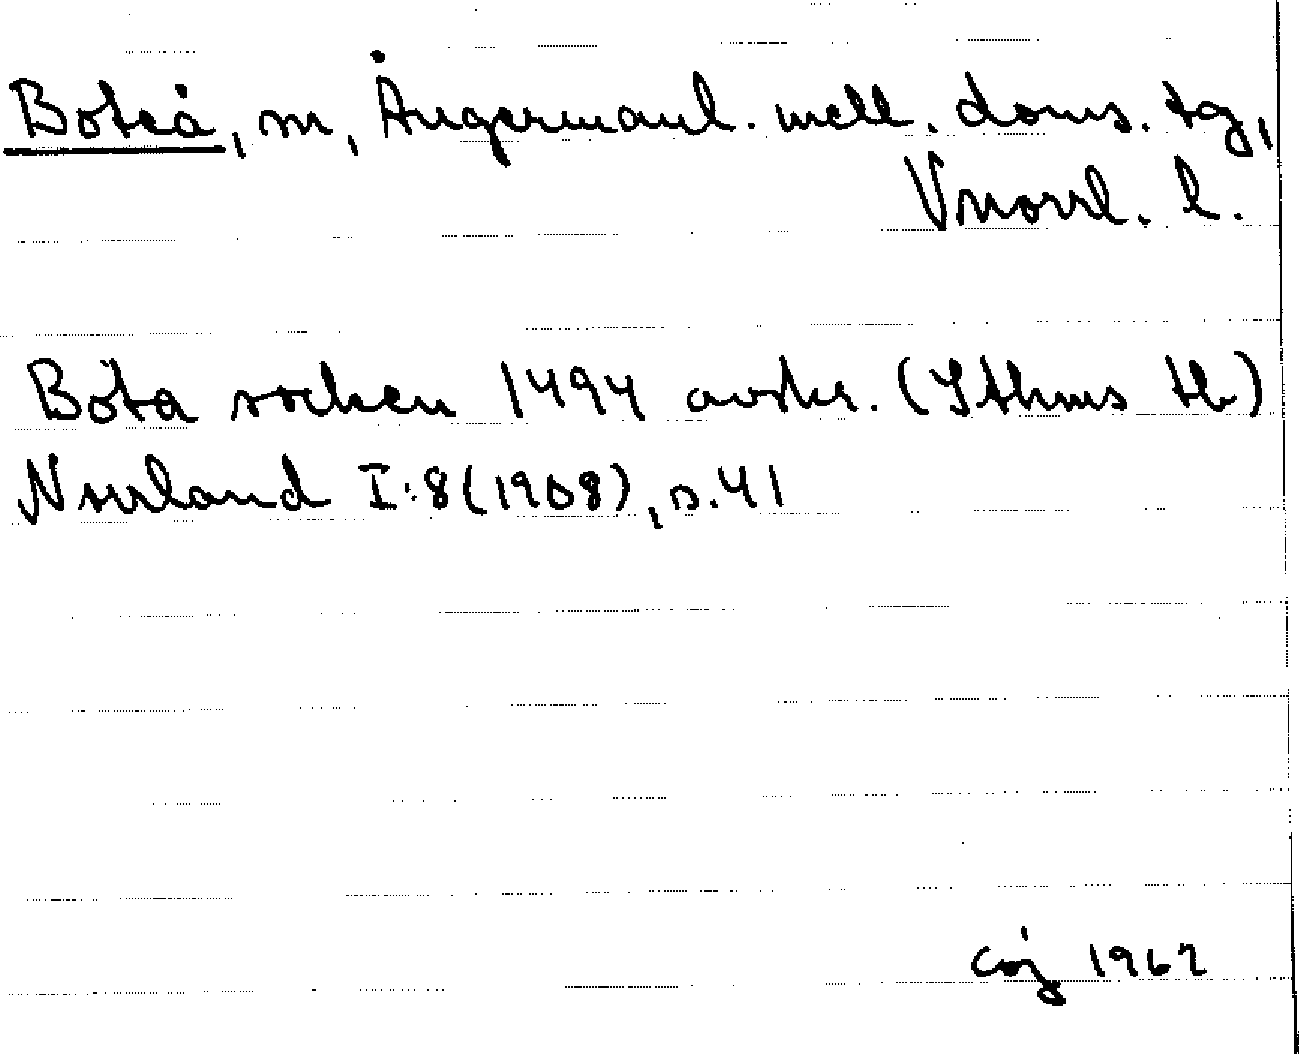 Boteå, sn, Ångermanl. mell. doms. tg,
Vnorrl. l.
Böta socken 1494 avskr. (Sthms tb)
Norrland I:8 (1908), s. 41
1962